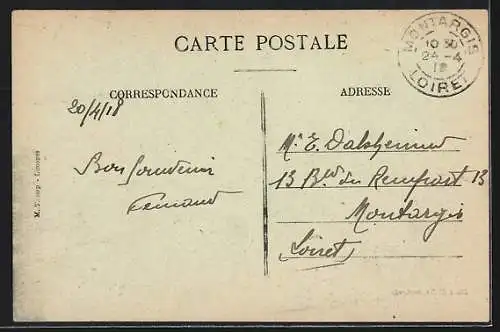 CARTE POSTALE
MONTARGIS
10 30
24-4
18
LOIRET
CORRESPONDANCE
ADRESSE
20/4/18
Bon Souvenir
Fernand
Mr E. Dalsheimer
13 Bld du Rempart 13
Montargis
(Loiret)
Limoges